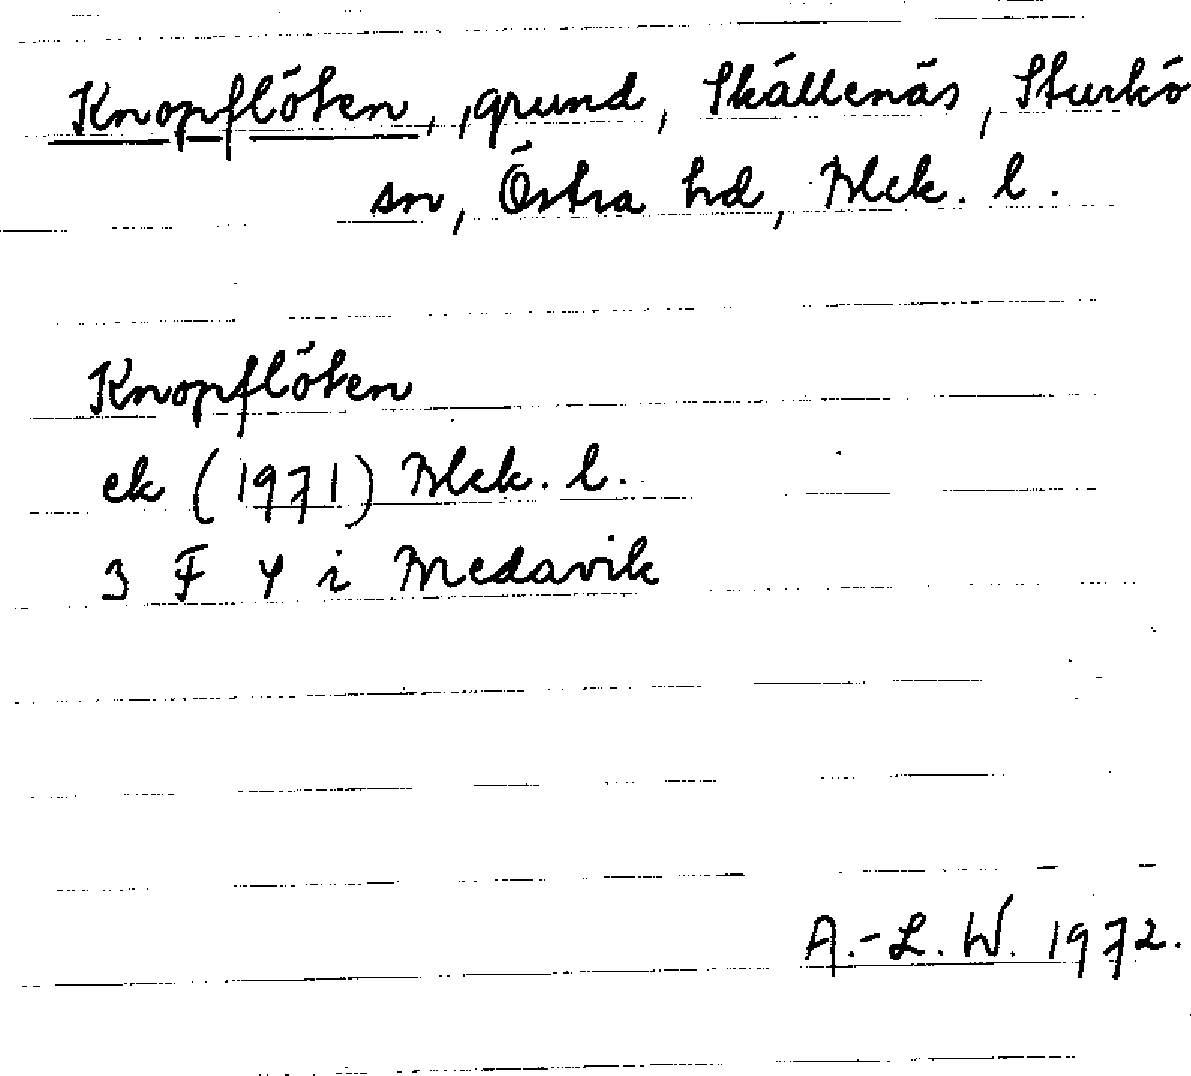 Knopflöten, grund, Skällenäs, Sturkö
sn, Östra hd, Blek. l.
Knopflöten
ek (1971) Blek. l.
3 F 4 i Bredavik
A.-L. W. 1972.